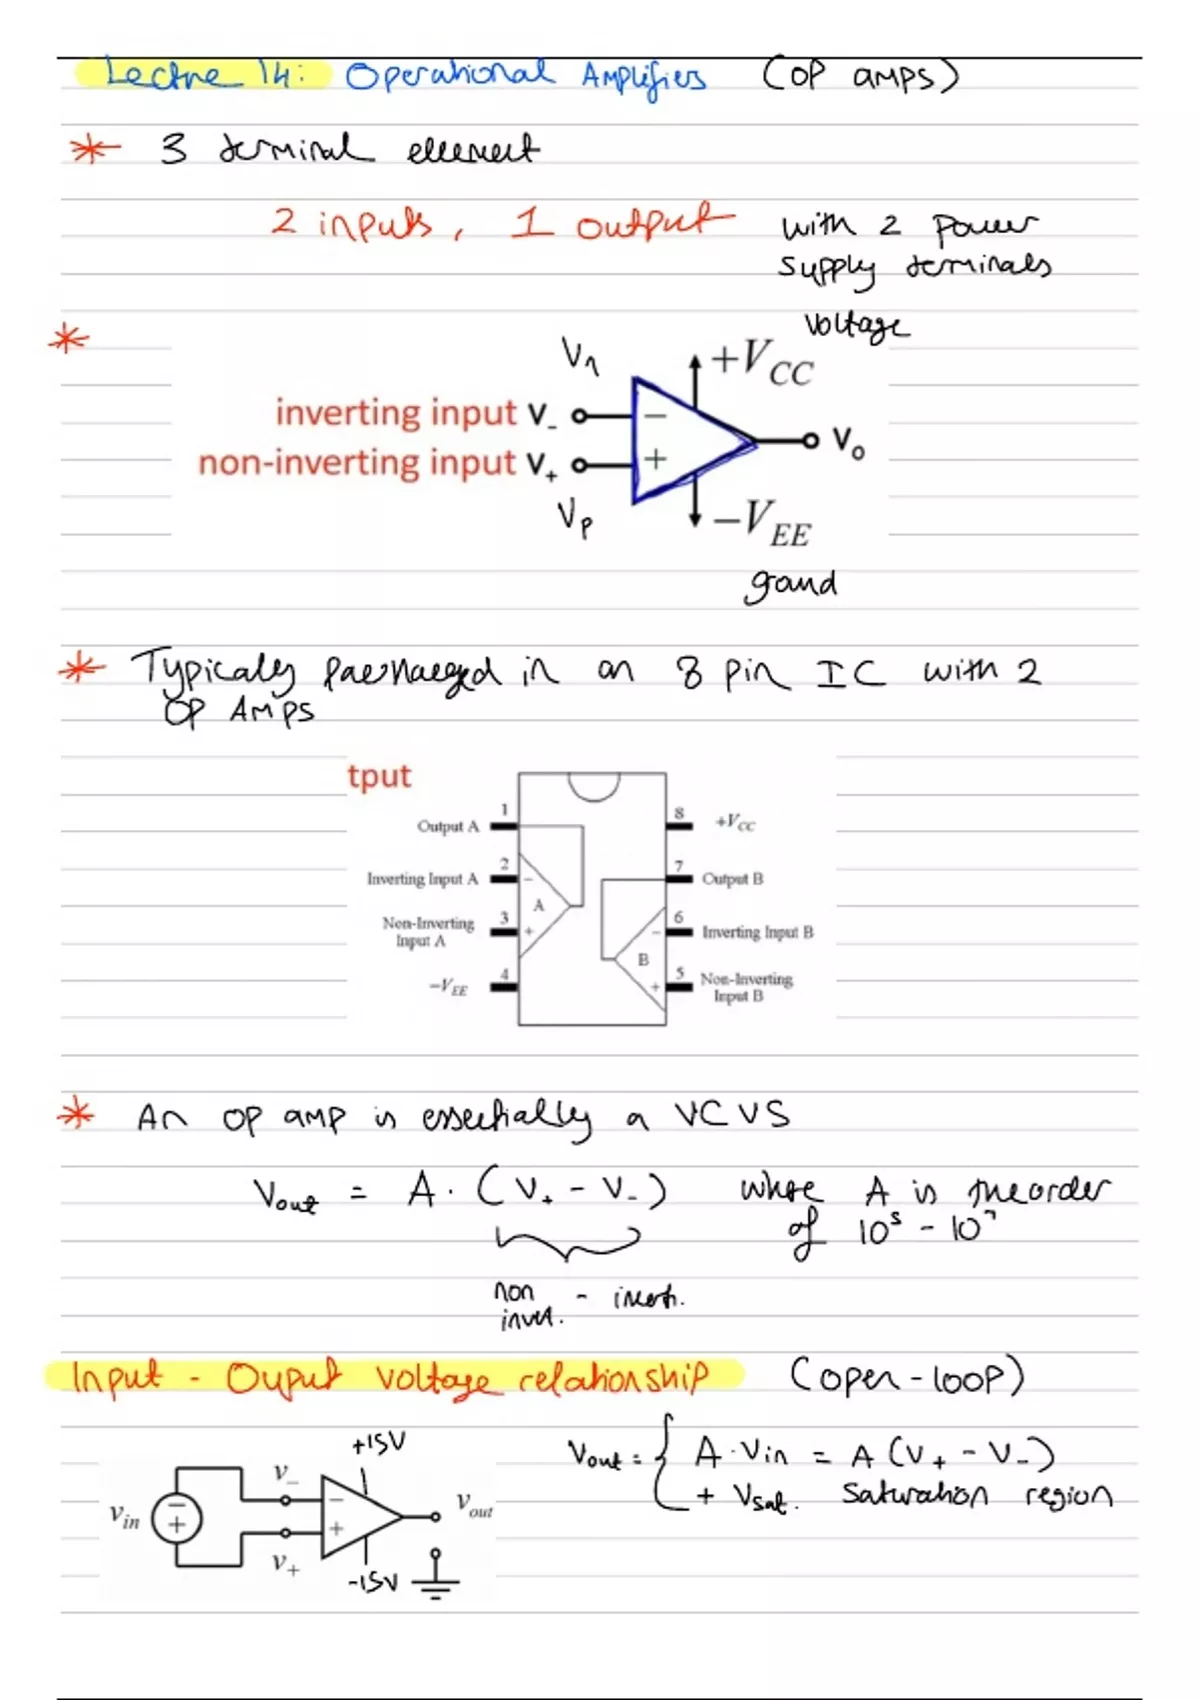 Lecture 14: Operational Amplifiers (OP amps)
* 3 terminal element
2 inputs, 1 output with 2 power
supply terminals
voltage
*
Vn
+VCC
inverting input V-
-
Vo
non-inverting input V+
+
Vp
-VEE
ground
* Typically packaged in an 8 pin IC with 2
OP AMPS
tput
1
8
Output A
+VCC
2
7
Inverting Input A
-
Output B
A
Non-Inverting
Input A
3
+
6
-
Inverting Input B
B
4
-VEE
5
+
Non-Inverting
Input B
* An op amp is essentially a VCVS
Vout = A · (V+ - V-) where A is the order
of 10^5 - 10^7
non - invert.
invert.
Input - Ouput voltage relationship (open-loop)
+15V
Vout = { A · Vin = A (V+ - V-)
+ Vsat. Saturation region
v-
-
vin
-
+
vout
+
v+
-15V